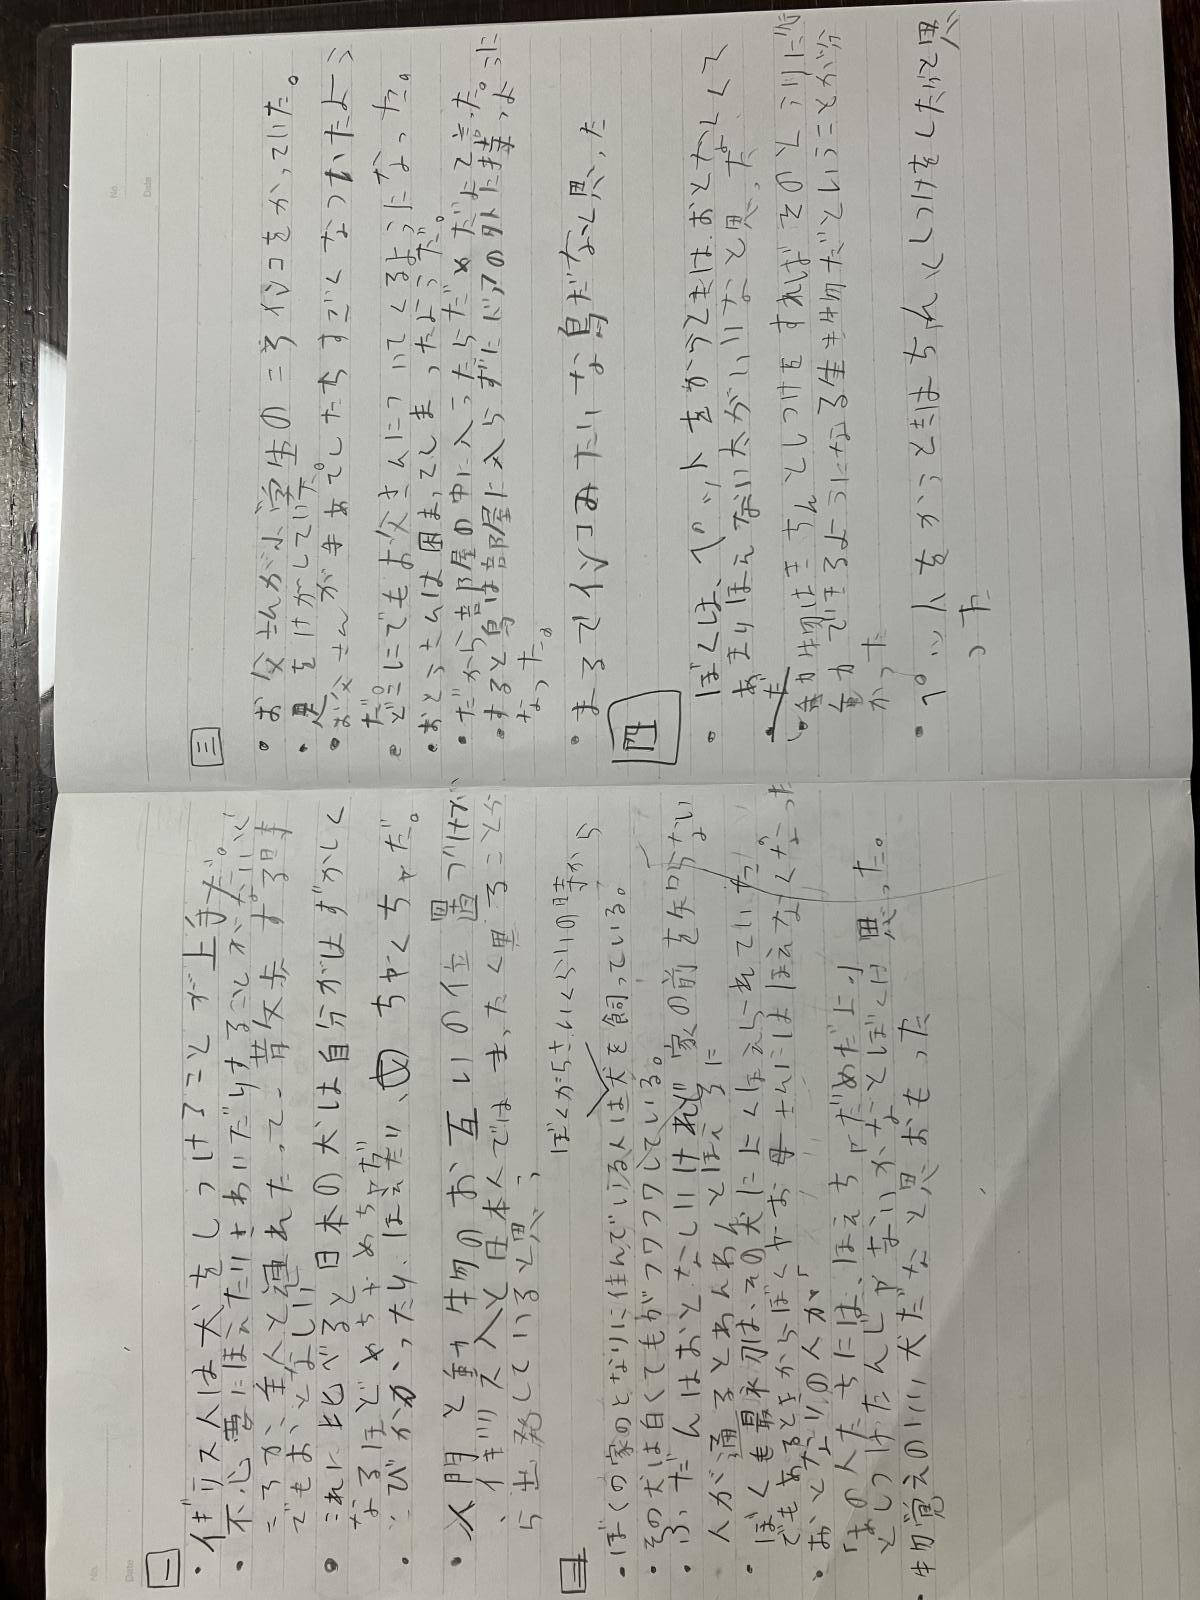 一
・イギリス人は犬をしつけることが上手だ。
・不必要にほえたりさわいだりすることがないど
ころか、主人と連れだって、散歩する時ま
でもおとなしい。
・これに比べると日本の犬は自分がはずかしく
なるほどめちゃめちゃだ
・とびかかったり、ほえたり、ちゃくちゃだ。
・人間と動物のお互いの位置づけが
、イギリス人と日本人ではまったく異なることか
ら出発していると思う、
二
ぼくが小さいくらいの時から
・ぼくの家のとなりに住んでいる人は犬を飼っている。
・その犬は白くてもがフワフワしている。
・ふだんはおとなしいけれど家の前を知らない
人が通るとわんわんとほえる
・ぼくも最初は、その犬によくほえられていた
でもあるときからぼくやお母さんにはほえなくなった
・おとなりの人が「
「あの人たちには、ほえちゃだめだよ」
としつけたんじゃないかなとぼくは思った。
・物覚えのいい犬だなと思おもった
三
・お父さんが小学生のころインコをかっていた。
・足をけがしていた。
・お父さんが手あてしたらすごくなついたよう
だ。
・どこにでもお父さんについてくるようになった。
・おとうさんは困ってしまったようだ。
・だから部屋の中に入ったらだめだよって言った。
・すると鳥は部屋に入らずにドアの外に持つように
なった。
・まるでインコみたいな鳥だなと思った
四
・ぼくは、ペットをかうときは、おとなしくて
あまりほえない犬がいいなと思った
・動物はきちんとしつけをすればそのとうりに行
動ができるようになる生き物だということが分
かった
・ペットをかうときはちゃんとしつけをしたいと思
った